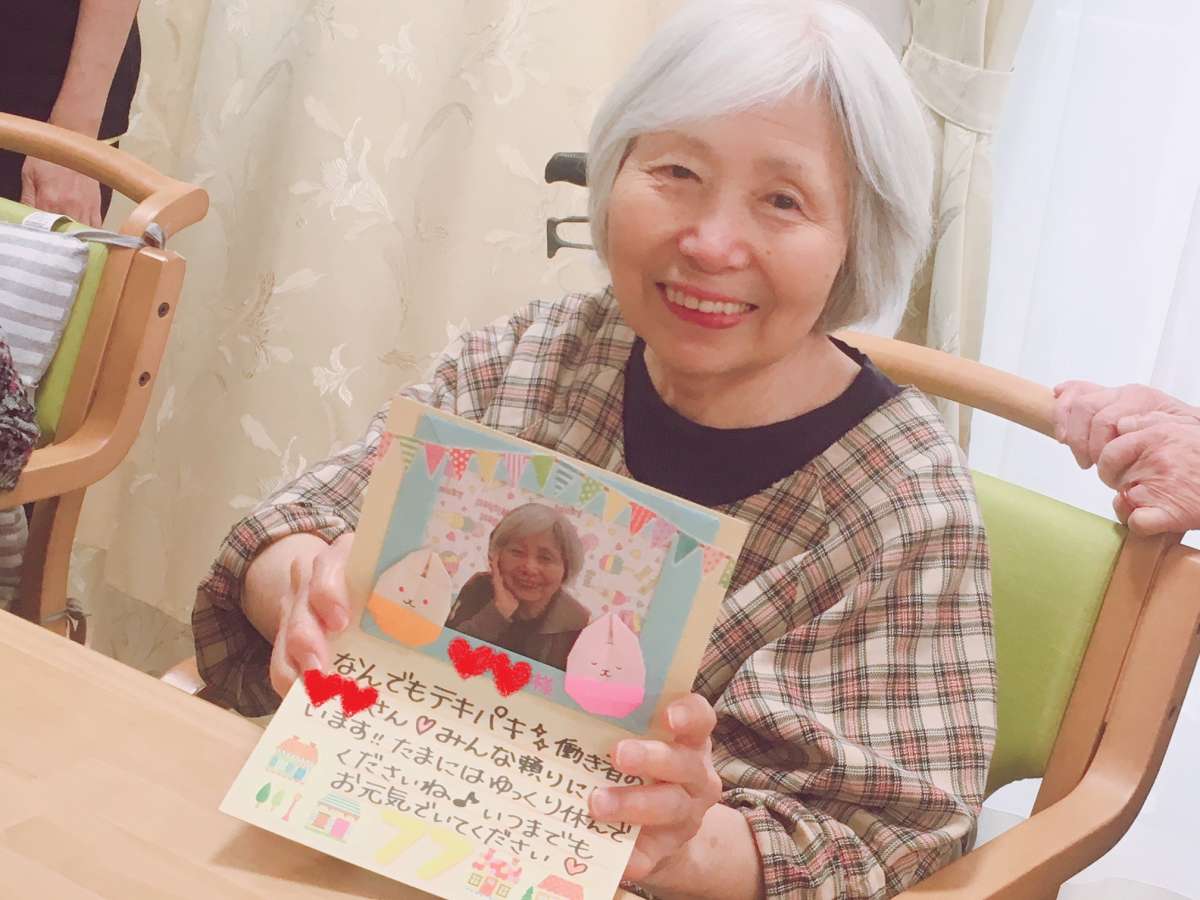 様
なんでもテキパキ 働き者の
さん♡みんな頼りに
います!!たまにはゆっくり休んで
くださいね♪いつまでも
お元気でいてください♡
77